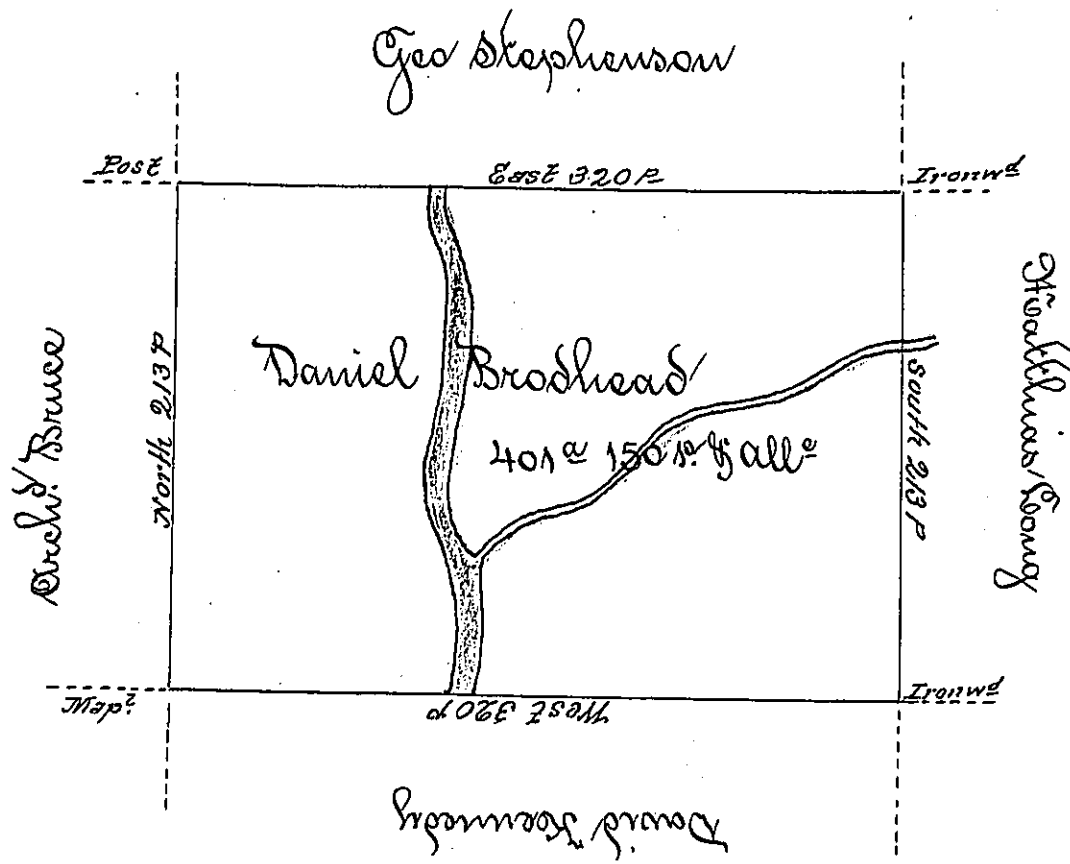 Geo Stephenson
Post
East 320 P
Ironwd
Archd Bruce
North 213 P
Daniel Brodhead
401a 150 p. & allce
South 213 P
Matthias Long
Maple
West 320 P
Ironwd
David Kennedy